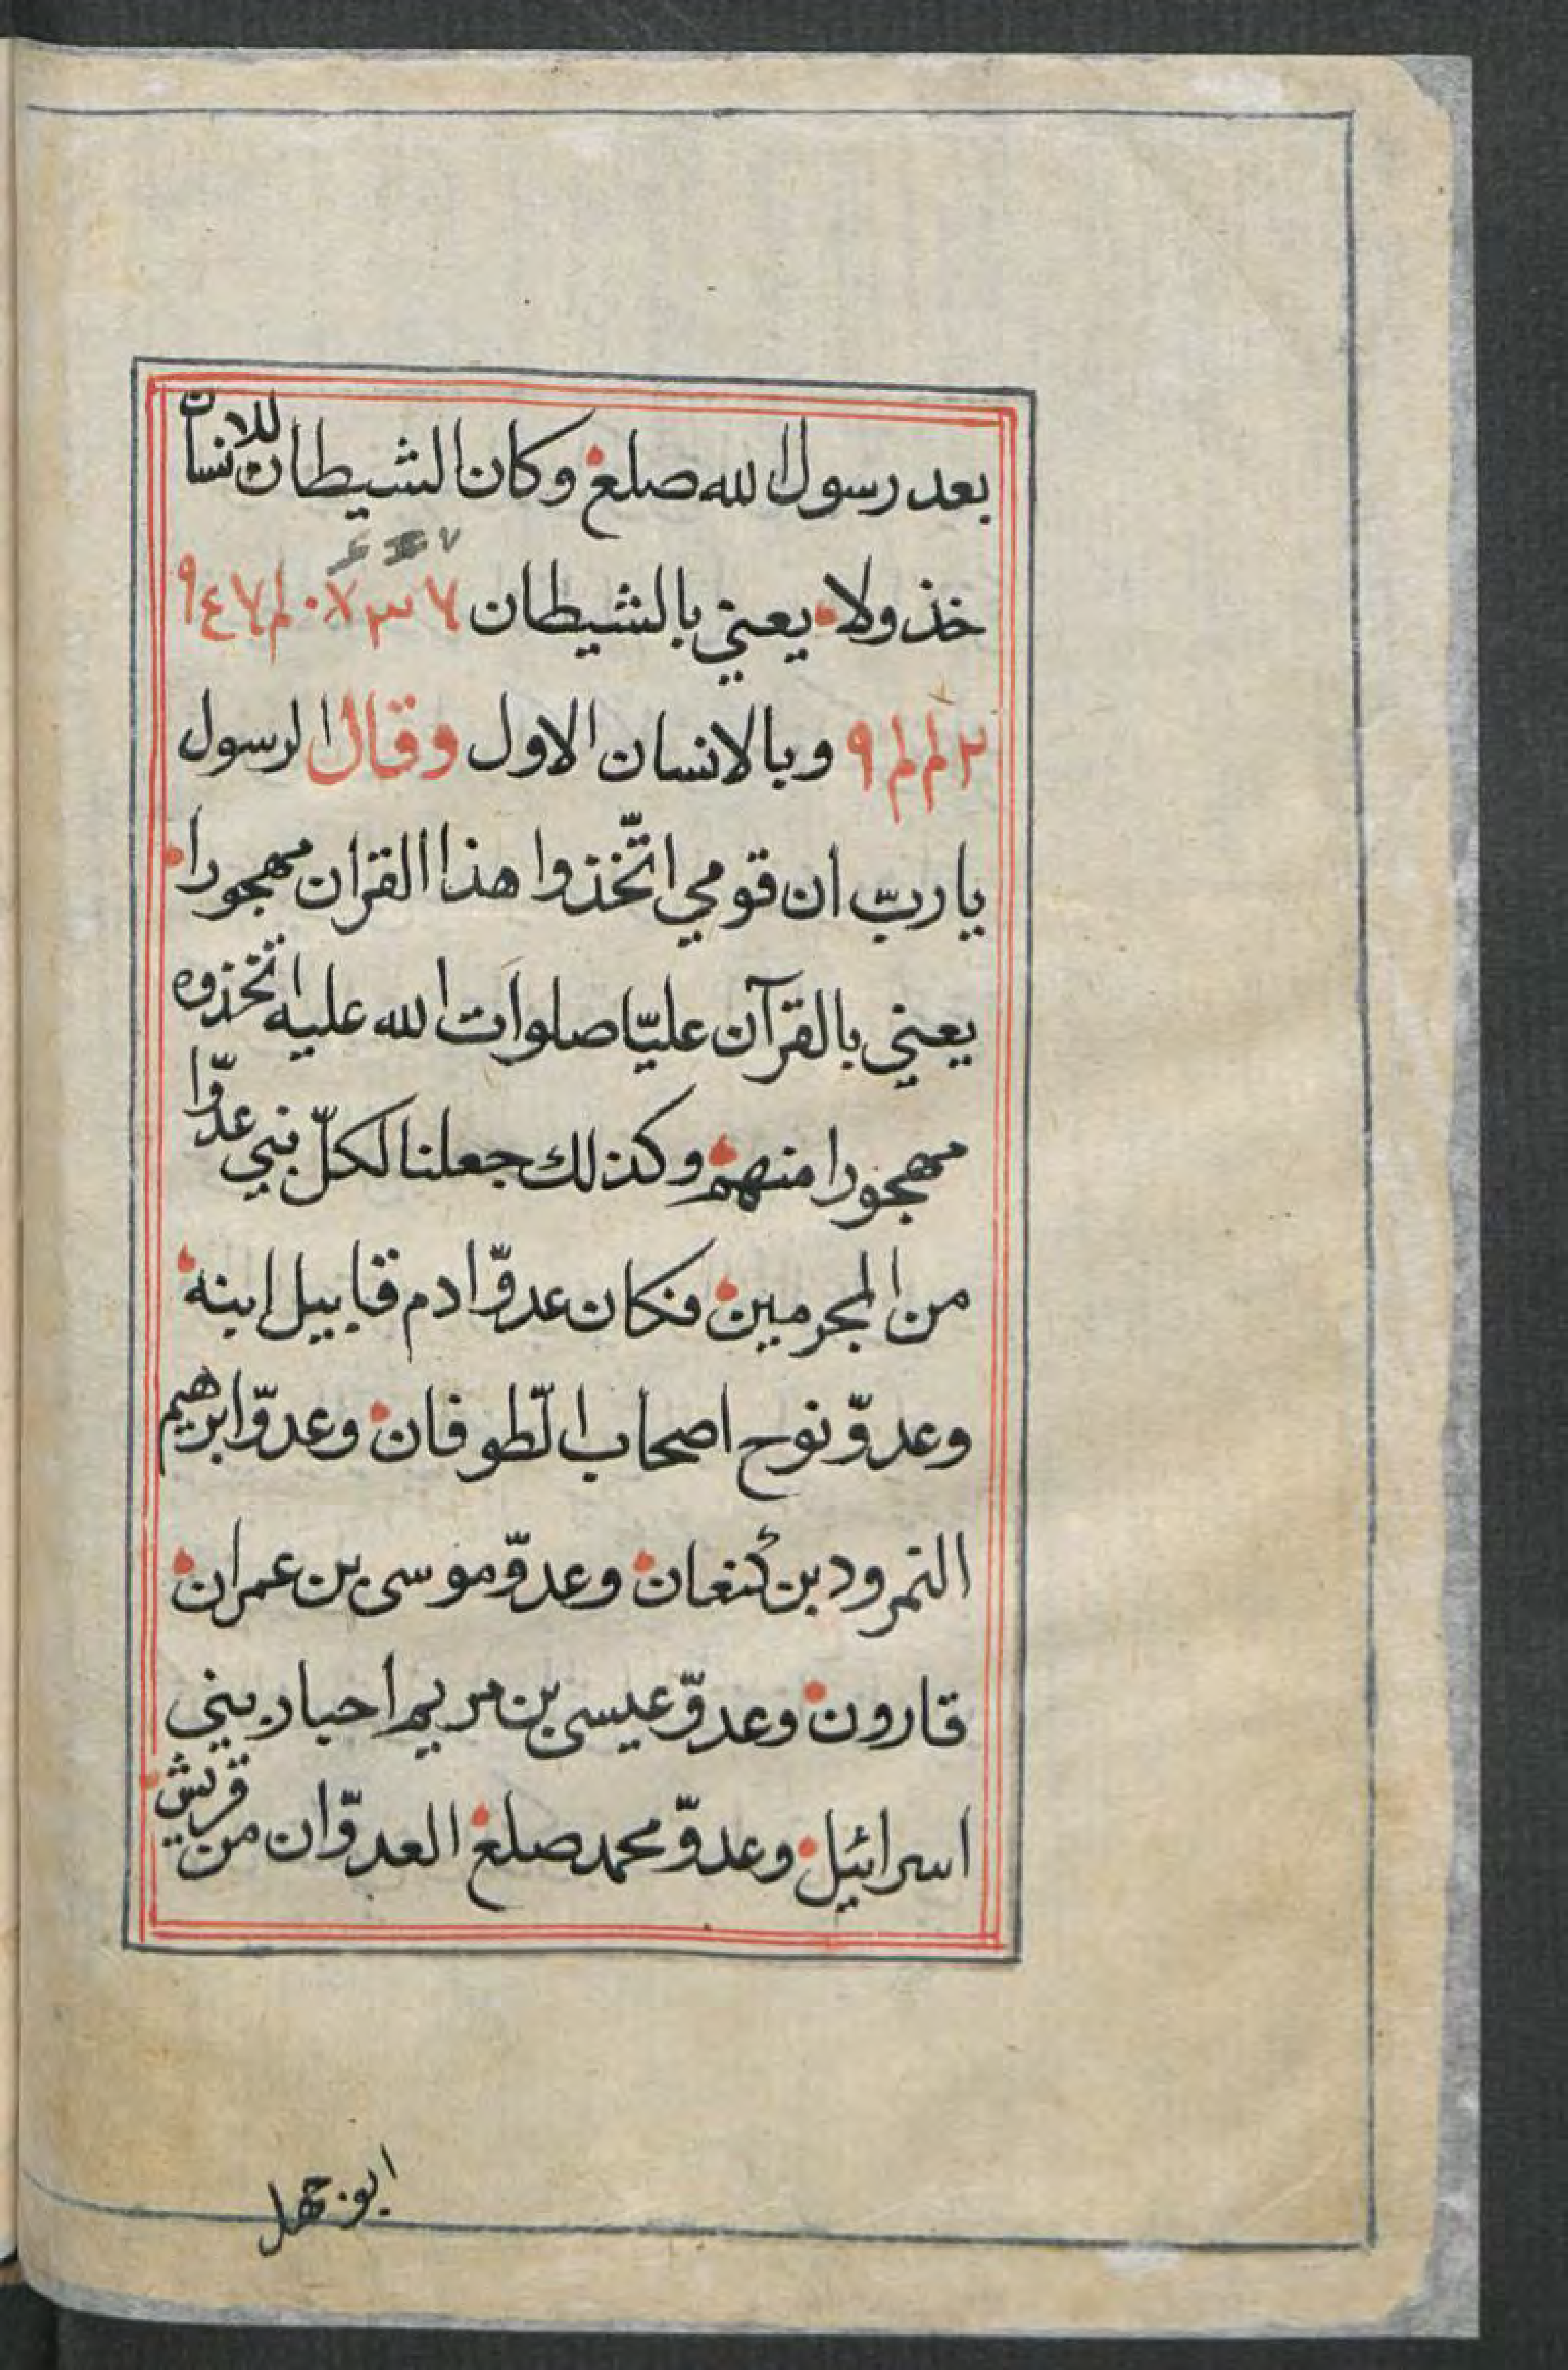 بعد رسول الله صلع وكان الشيطان للانسان
خذولا يعني بالشيطان
وبالانسان الاول وقال الرسول
يا ربّ ان قومي اتّخذوا هذا القران مهجورا
يعني بالقرآن عليّا صلوات الله عليه اتخذوه
مهجورا منهم وكذلك جعلنا لكلّ نبي عدوّا
من المجرمين فكان عدوّ ادم قابيل ابنه
وعدوّ نوح اصحاب الطّوفان وعدوّ ابرهيم
النمرود بن كنعان وعدوّ موسى بن عمران
قارون وعدوّ عيسى بن مريم احبار بني
اسرائيل وعدوّ محمد صلع العدوّان من قريش
ابو جهل